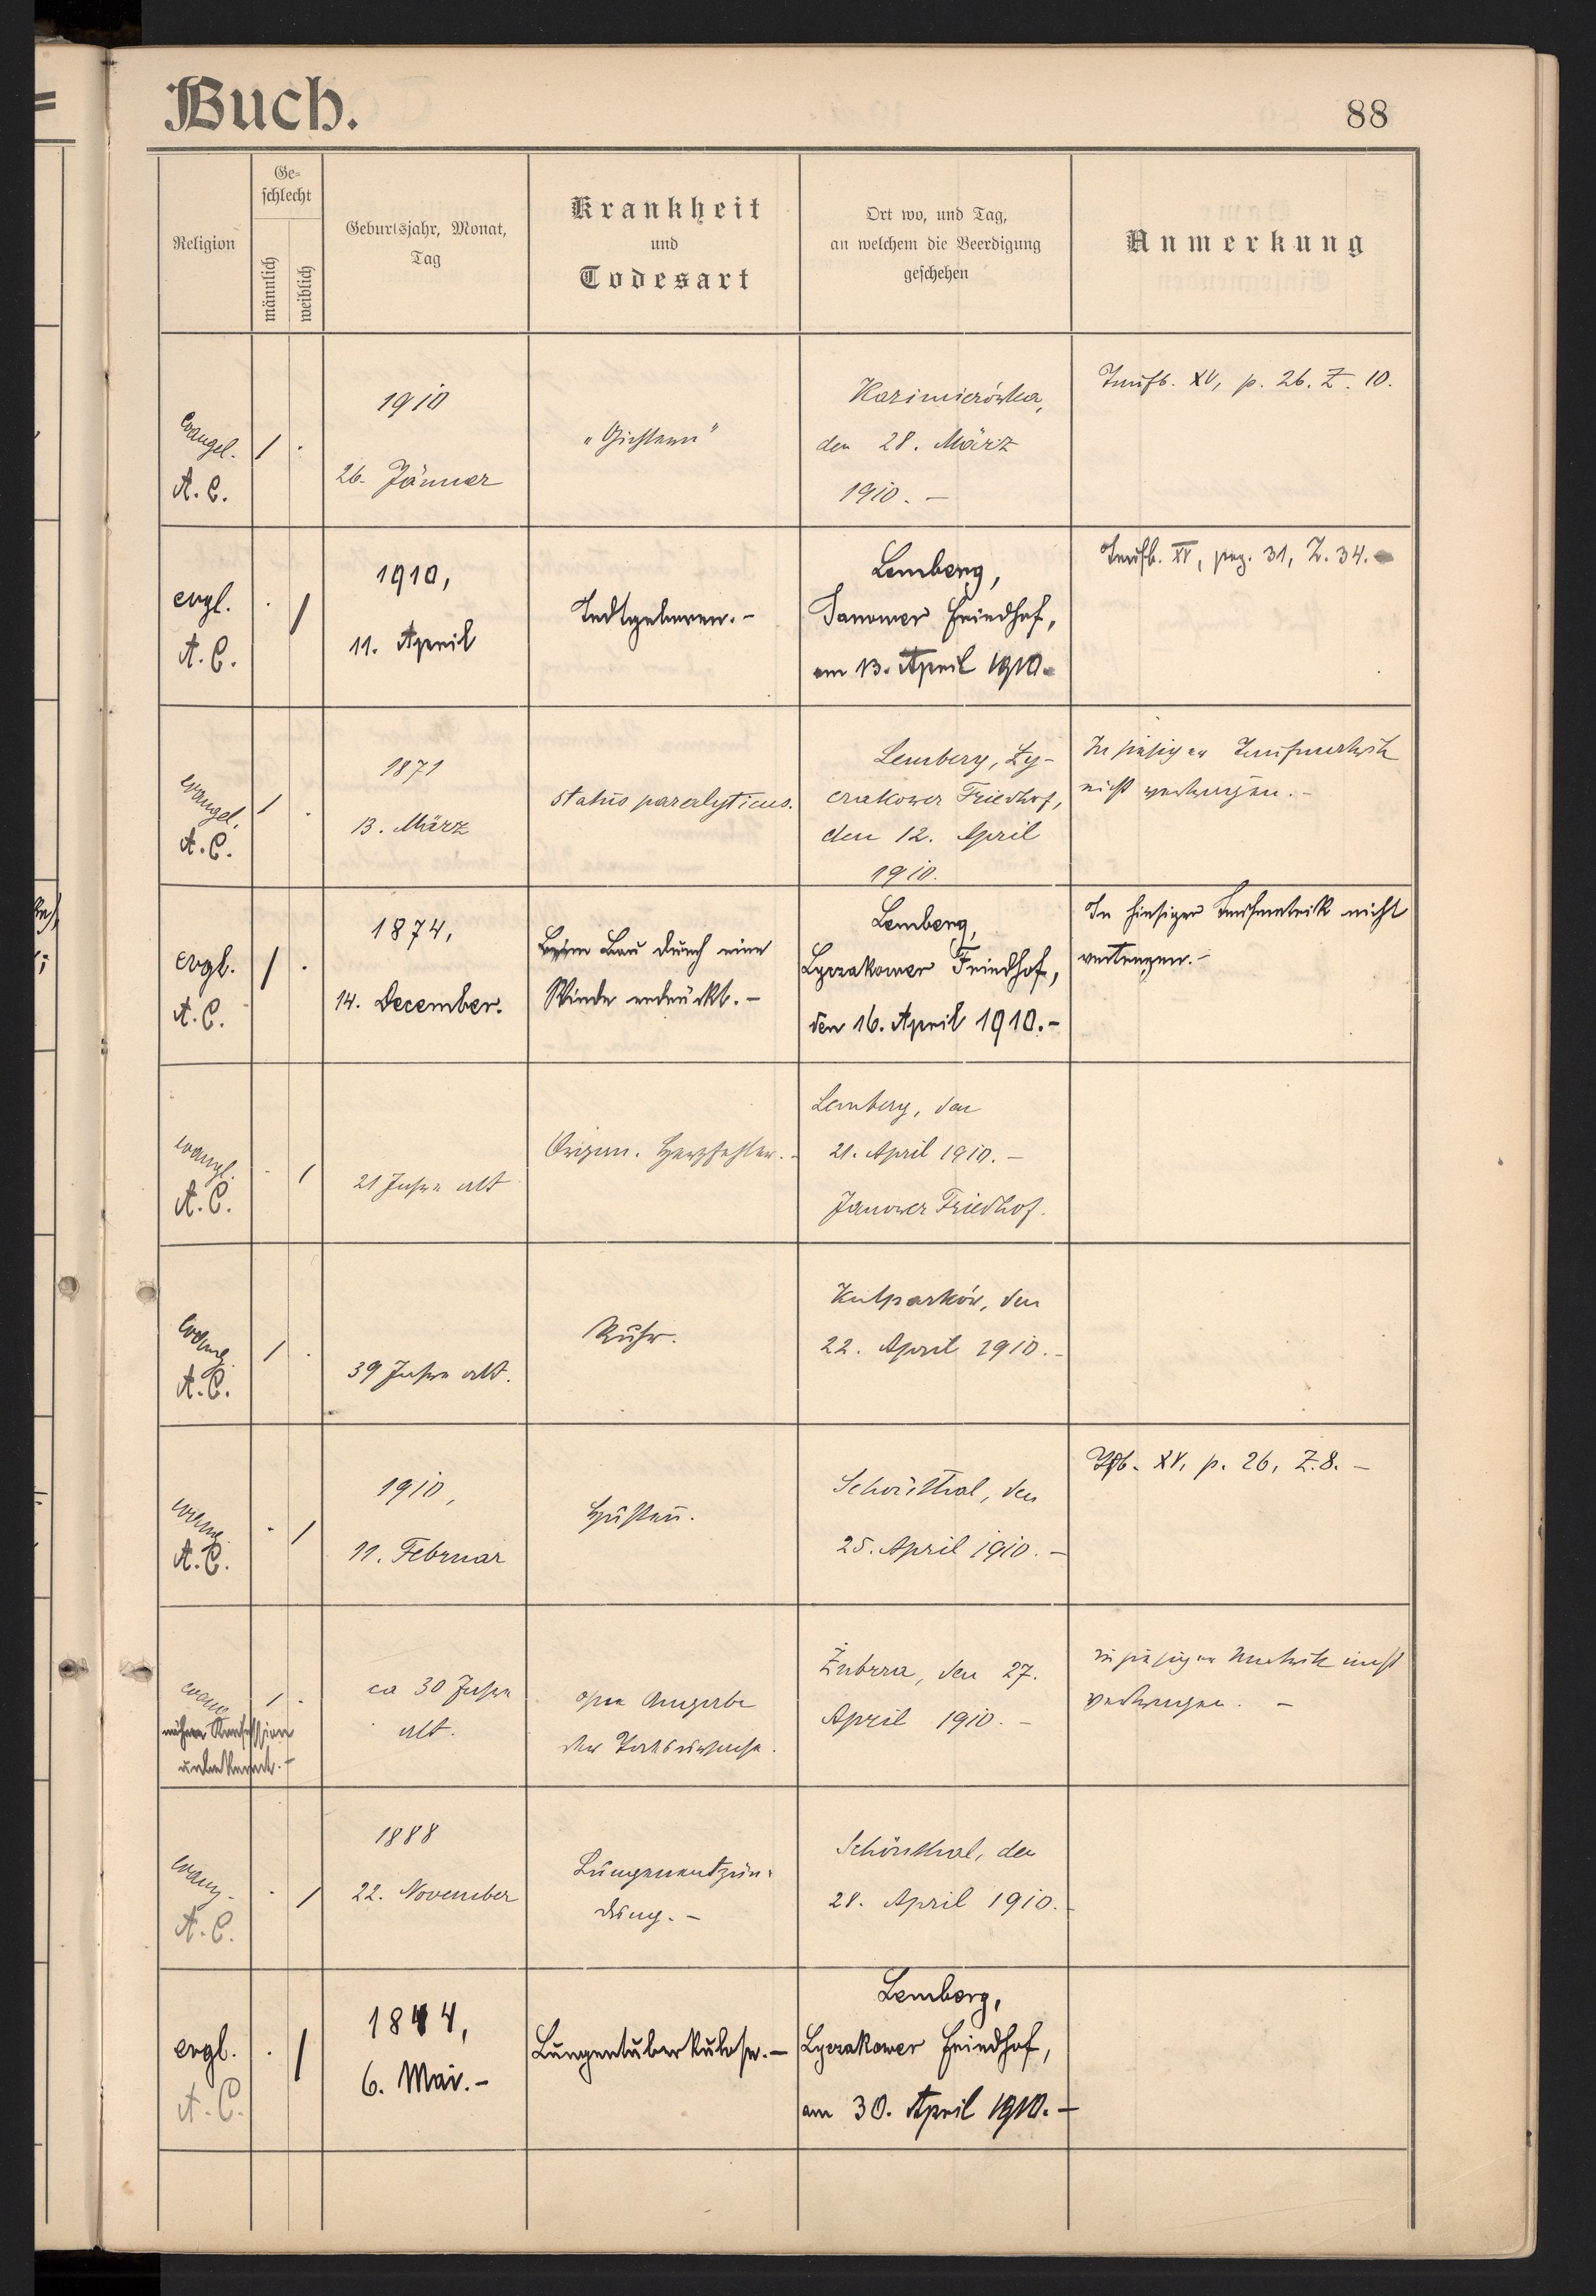 Buch.
88
Religion
Ge-
schlecht
männlich
weiblich
Geburtsjahr, Monat,
Tag
Krankheit
und
Todesart
Ort wo, und Tag,
an welchem die Beerdigung
geschehen
Anmerkung
Evangel.
A. C.
/ .
1910
26. Jänner
"Gichtern"
Kazimierówka,
den 28. März
1910. –
Taufb. XV, p. 26. Z. 10.
evgl.
A. C.
. /
1910,
11. April
Todtgeboren. –
Lemberg,
Janower Friedhof,
am 13. April 1910.
Taufb. XV, pag. 31, Z. 34. –
evangel.
A. C.
/ .
1871
13. März
Status paralyticus.
Lemberg, Ly-
czakower Friedhof,
den 12. April
1910.
In hiesiger Taufmatrik
nicht vertragen. –
evgl.
A. C.
/ .
1874,
14. December.
Beim Bau durch eine
Winde erdrückt. –
Lemberg,
Lyczakower Friedhof,
den 16. April 1910. –
In hiesiger Taufmatrik nicht
vertragen. –
evangl.
A. C.
. /
21 Jahre alt
Organ. Herzfehler. –
Lemberg, den
21. April 1910. –
Janower Friedhof.
evang.
A. C.
/ .
39 Jahre alt.
Ruhr.
Kulparków, den
22. April 1910. –
evang.
A. C.
. /
1910,
11. Februar
Husten.
Schönthal, den
25. April 1910. –
Tfb. XV, p. 26, Z. 8. –
evang.
nähere Konfession
unbekannt. –
/ .
ca 30 Jahre
alt.
ohne Angabe
der Todesursache.
Żubrza, den 27.
April 1910. –
in hiesiger Matrik nicht
vertragen. –
evang.
A. C.
. /
1888
22. November
Lungenentzün-
dung. –
Schönthal, den
28. April 1910. –
evgl.
A. C.
. /
6. Mai. –
Lungentuberkulose. –
Lemberg,
Lyczakower Friedhof,
am 30. April 1910. –